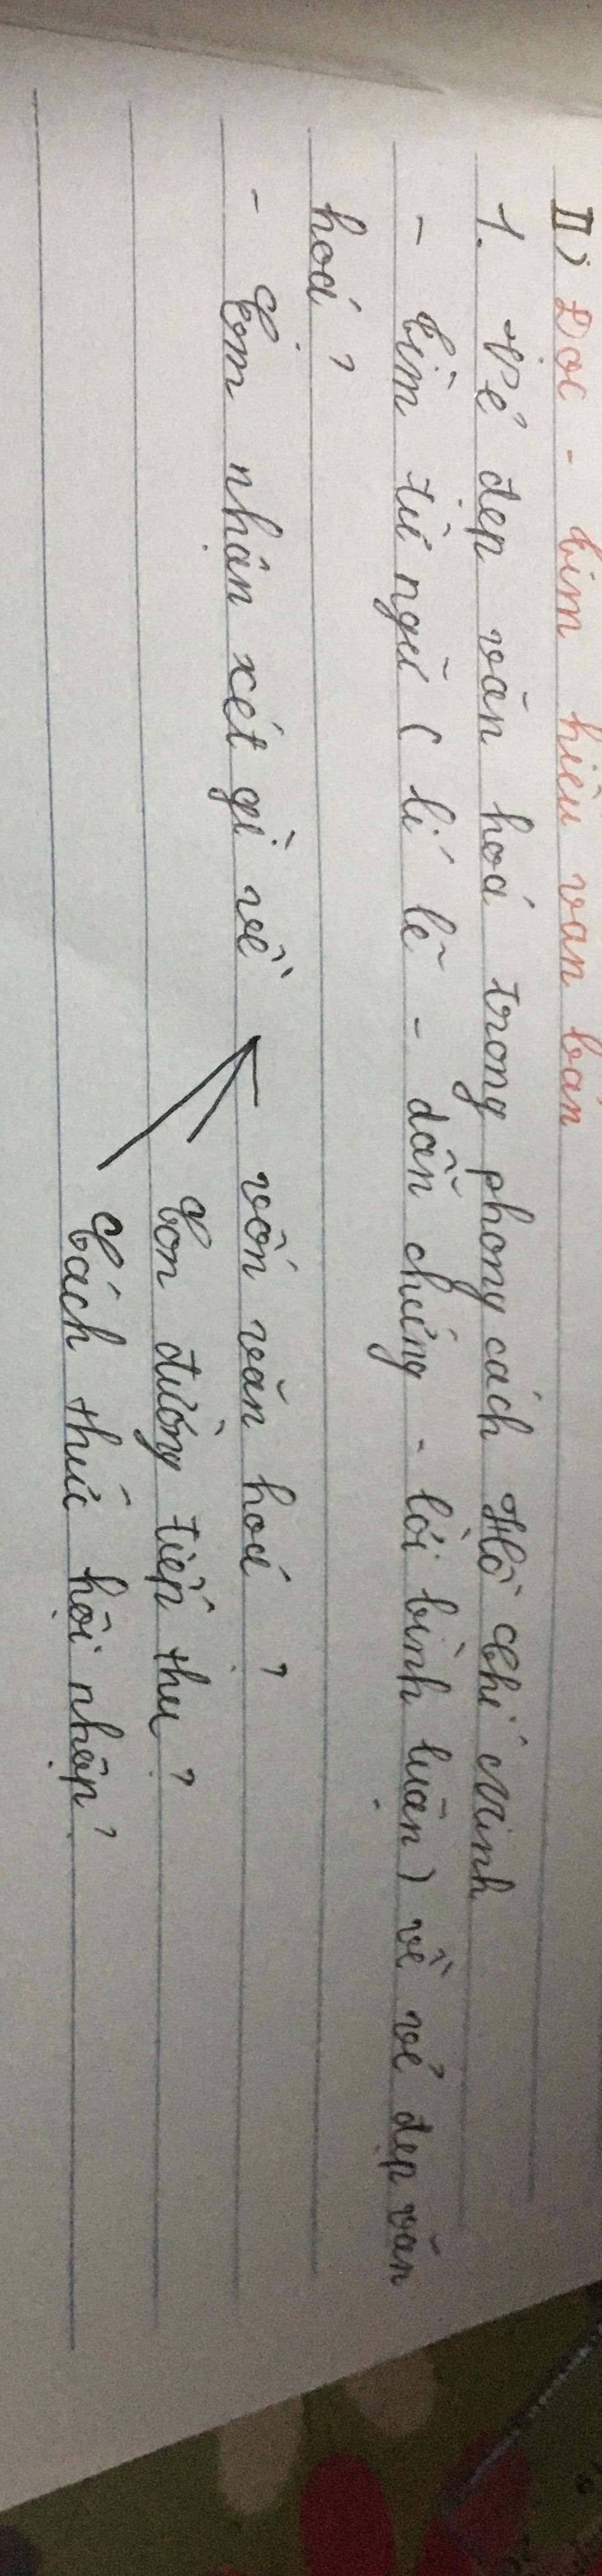 II) Đọc - tìm hiểu văn bản
1. Vẻ đẹp văn hoá trong phong cách Hồ Chí Minh
- Tìm từ ngữ ( lí lẽ - dẫn chứng - lời bình luận ) về vẻ đẹp văn
hoá ?
- Em nhận xét gì về
vốn văn hoá ?
Con đường tiếp thu ?
Cách thức hội nhập ?